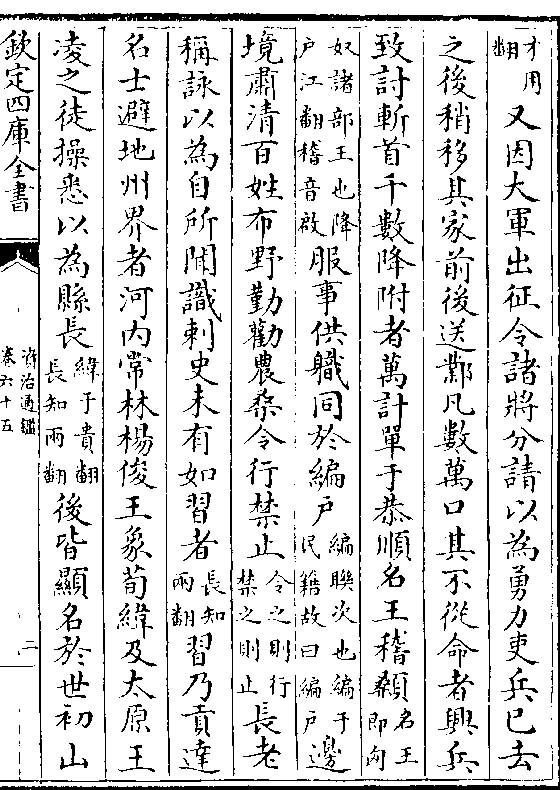 才用
翻
又因大軍出征令諸將分請以為勇力吏兵已去
之後稍移其家前後送鄴凡數萬口其不從命者興兵
致討斬首千數降附者萬計單于恭順名王稽顙
名王
即匈
奴諸部王也降
戶江翻稽音啟
服事供職同於編戶
編聯次也編于
民籍故曰編戶
邊
境肅清百姓布野勤勸農桑令行禁止
令之則行
禁之則止
長老
稱詠以為自所聞識刺史未有如習者
長知
兩翻
習乃貢達
名士避地州界者河內常林楊俊王象荀緯及太原王
凌之徒操悉以為縣長
緯于貴翻
長知兩翻
後皆顯名於世初山
欽定四庫全書
資治通鑑
卷六十五
二